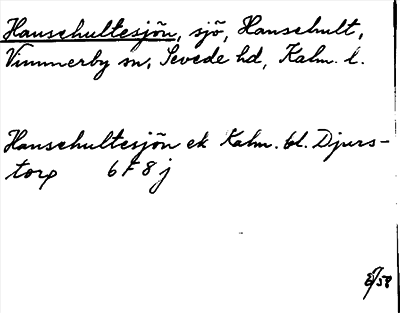 Hanschultesjön, sjö, Hanschult,
Vimmerby sn, Sevede hd, Kalm. l.
Hanschultesjön ek Kalm. bl. Djurs-
torp 6F 8j